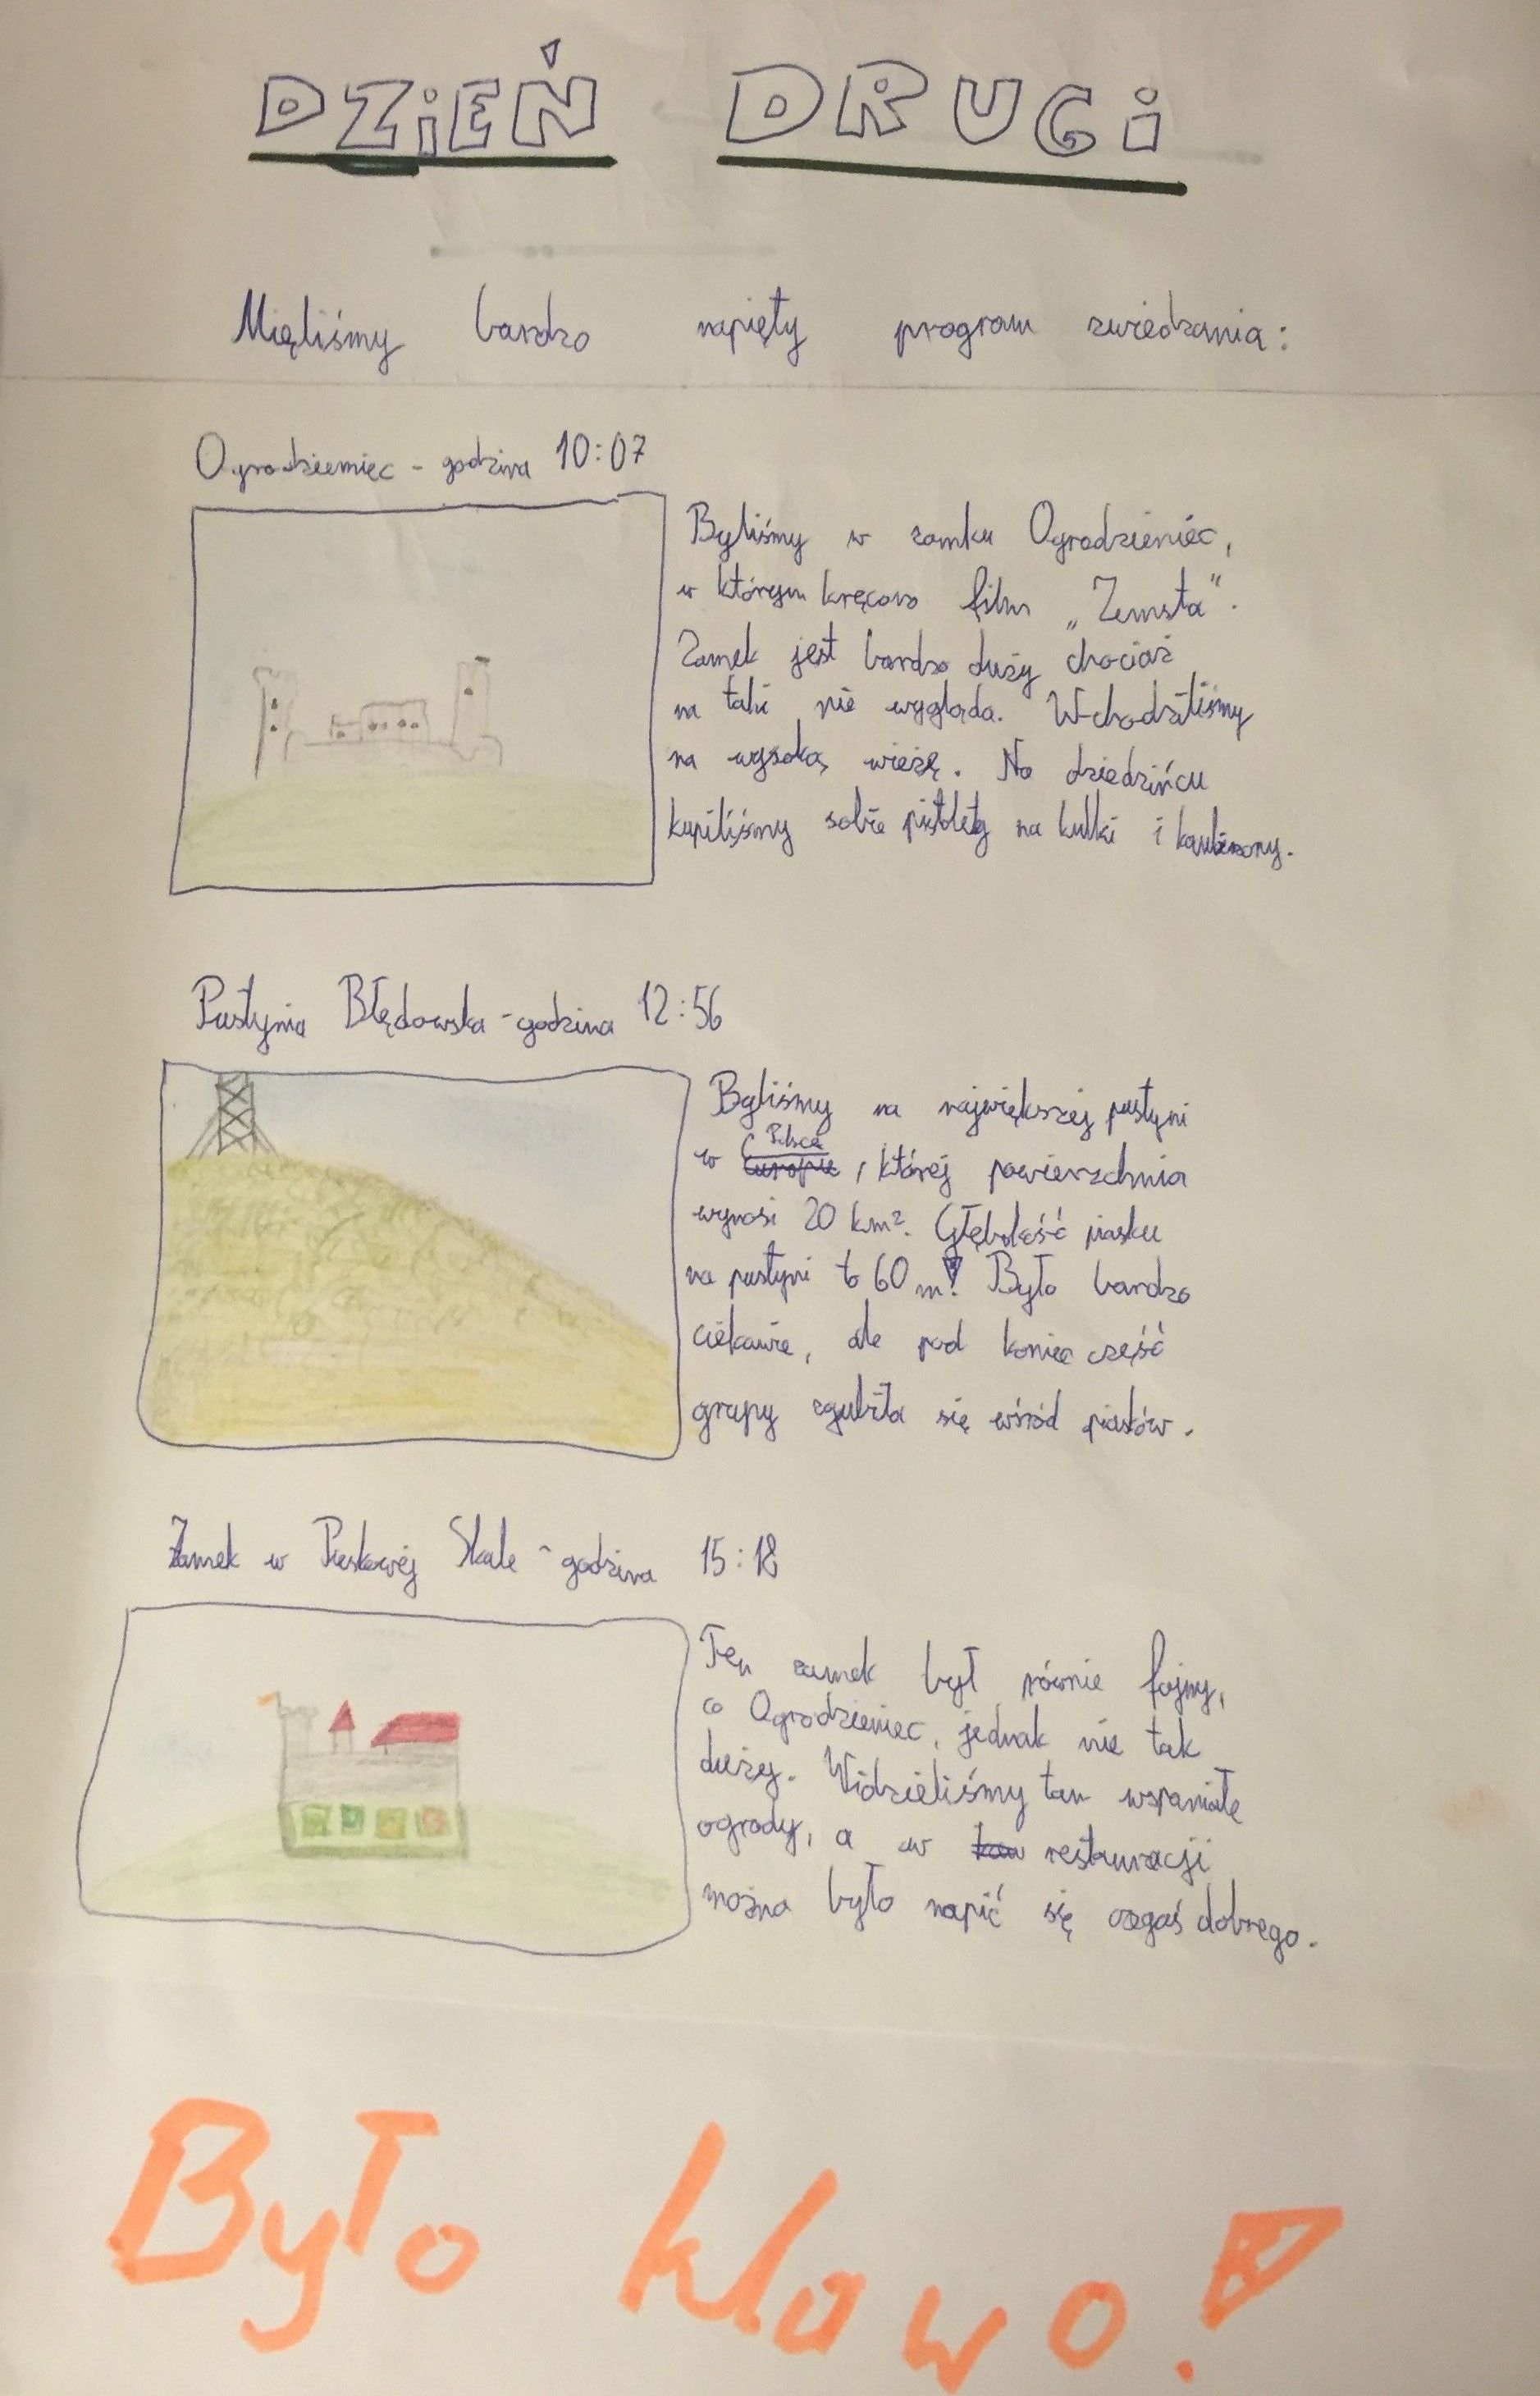 DZIEŃ DRUGI
Mieliśmy bardzo napięty program zwiedzania:
Ogrodzieniec - godzina 10:07
Byliśmy w zamku Ogrodzieniec,
w którym kręcono film „Zemsta".
Zamek jest bardzo duży chociaż
na taki nie wygląda. Wchodziliśmy
na wysoką wieżę. Na dziedzińcu
kupiliśmy sobie pistolety na kulki i
Pustynia Błędowska - godzina 12:56
Byliśmy na największej pustyni
w Polsce Europie, której powierzchnia
wynosi 20 km². Głębokość piasku
na pustyni to 60 m! Było bardzo
ciekawie, ale pod koniec część
grupy zgubiła się wśród piasków.
Zamek w Pieskowej Skale - godzina 15:18
Ten zamek był równie fajny,
co Ogrodzieniec, jednak nie tak
duży. Widzieliśmy tam wspaniałe
ogrody, a w restauracji
można było napić się czegoś dobrego.
Było klawo!